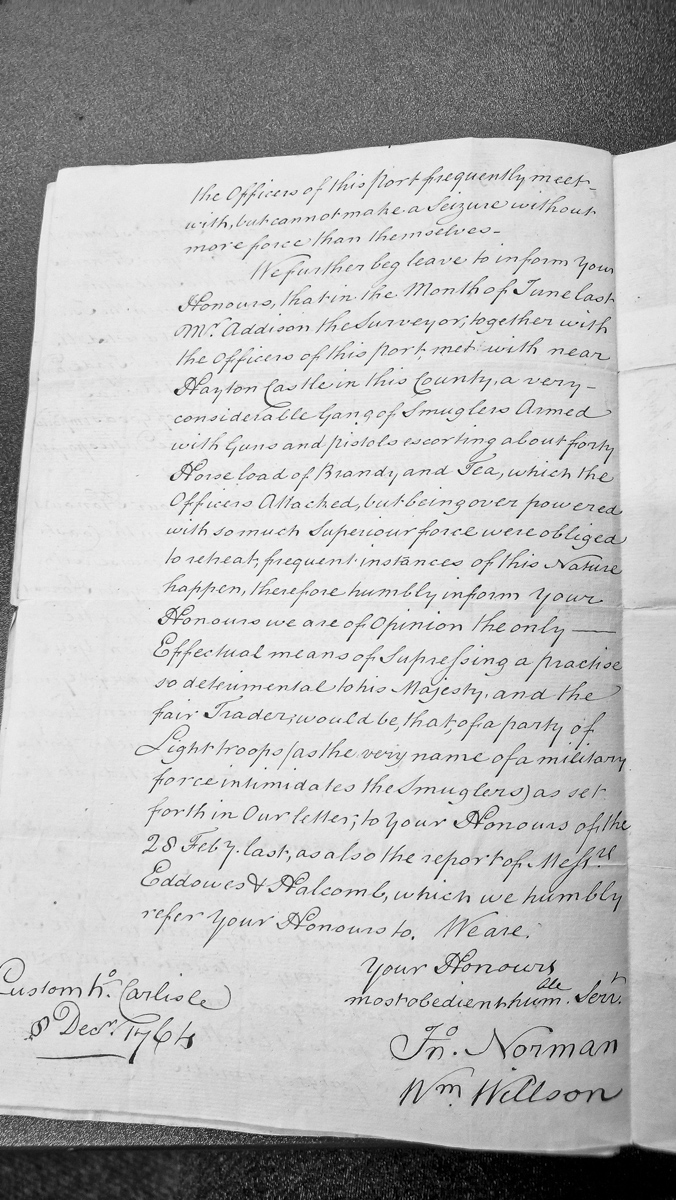 the Officers of this Port frequently meet-
with, but cannot make a Seizure without
more force than themselves-
We further beg leave to inform Your
Honours, that in the Month of June last
Mr. Addison the Surveyor, together with
the Officers of this Port met with near
Hayton Castle in this County, a very-
considerable Gang of Smuglers Armed
with Guns and Pistols escorting about forty
Horse load of Brandy and Tea, which the
Officers Attacked, but being over powered
with so much Superiour force were obliged
to retreat, frequent instances of this Nature
happen, therefore humbly inform Your
Honours we are of Opinion the only —
Effectual means of Supressing a practise
so detrimental to his Majesty, and the
fair Trader, would be, that, of a party of
Light troops (as the very name of a military
force intimidates the Smuglers) as set
forth in Our letter, to Your Honours of the
28 Feby. last, as also the report of Messrs
Eddowes & Halcomb, which we humbly
refer Your Honours to. We are.
Your Honours
most obedient hum ble. Servt.
Jno. Norman
Wm. Willson
Custom Ho. Carlisle
8 Decr. 1764